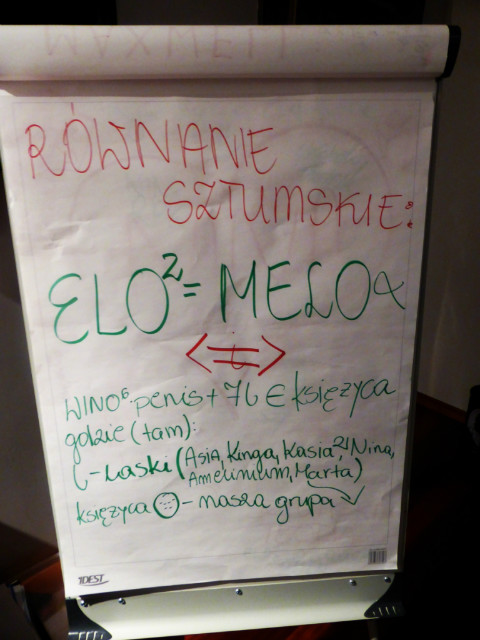 RÓWNANIE
SZTUMSKIE:
ELO²= MELOα
<=>
WINO⁶·penis+7b ∈ księżyca
gdzie (tam):
b-Laski (Asia, Kinga, Kasia²¹, Nina,
Amelinium, Marta)
księżyca - nasza grupa
IDEST